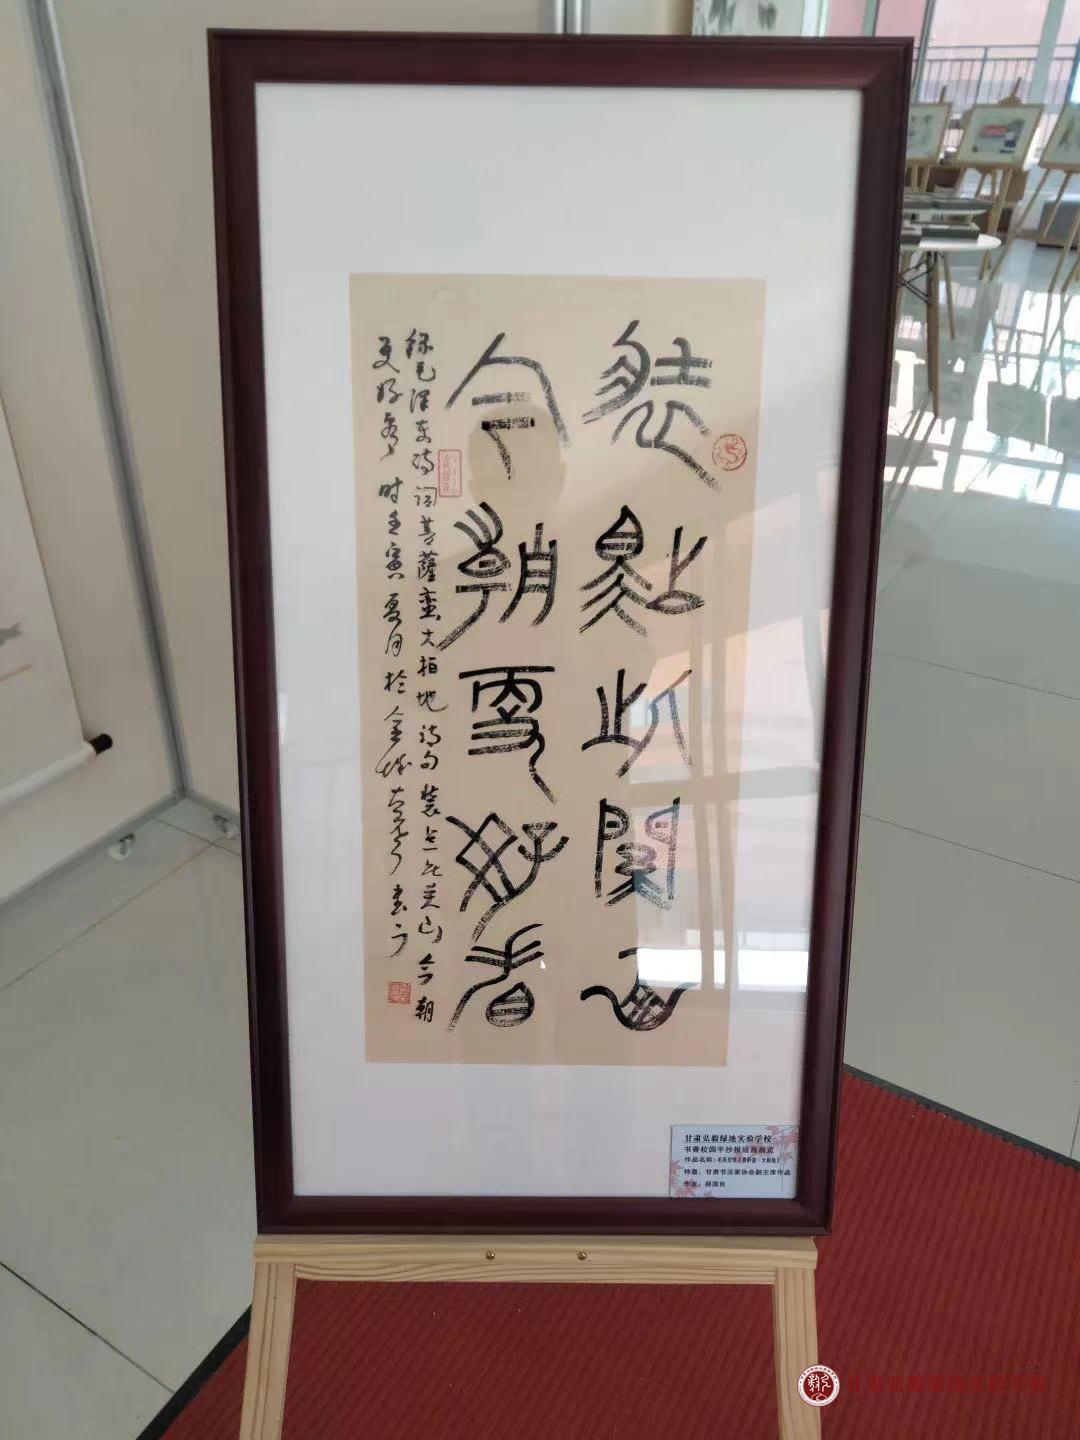 装點此關山
今朝更好看
錄毛泽东诗词菩薩蛮大柏地诗句装点此关山今朝
更好看 时壬寅夏月於金城
甘肃弘毅绿地实验学校
书香校园手抄报绘画展览
作品名称：毛泽东诗《菩萨蛮·大柏地》
特邀：甘肃书法家协会副主席作品
作者：郝国良
甘肃弘毅绿地实验学校